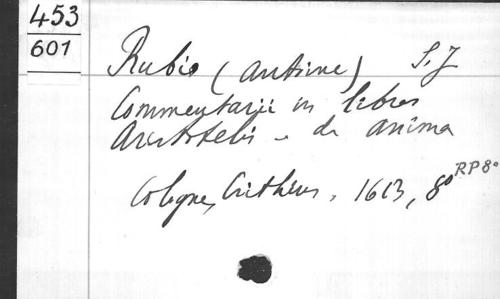 453
601
Rubio (Antoine) S. J
Commentarii in libros
Aristotelis . de anima
Cologne, Crithius, 1613, 8º RP 8º